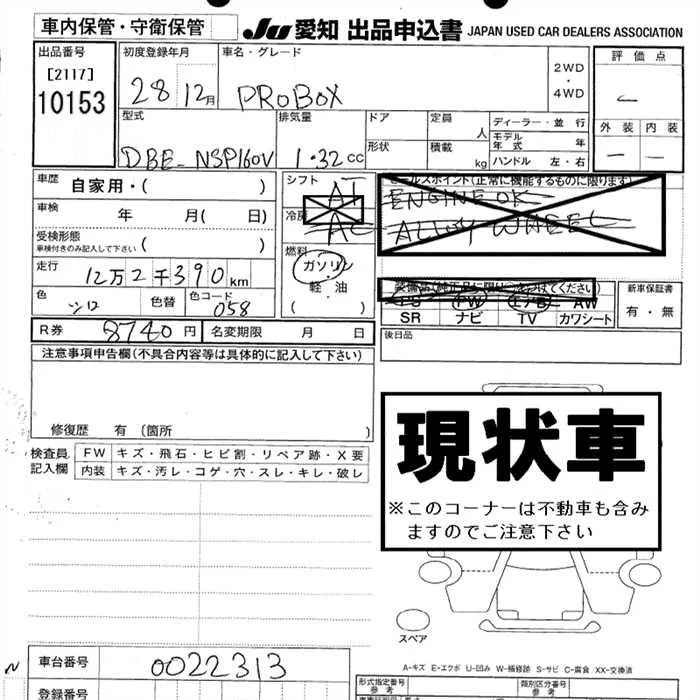 車内保管・守衛保管
JU 愛知 出品申込書 JAPAN USED CAR DEALERS ASSOCIATION
出品番号
[2117]
10153
初度登録年月
28 12月
車名・グレード
PROBOX
2WD
・
4WD
評価点
—
外装 内装
— —
型式
DBE-NSP160V
排気量
1.32 cc
ドア
形状
定員 人
積載 kg
ディーラー・並行
モデル年式 年
ハンドル 左・右
車歴 自家用・( )
車検 年 月( 日)
受検形態
車検付きのみ記入して下さい ( )
走行
12万2千390km
色
シロ
色替
色コード
058
シフト
AT
冷房
AC
燃料
ガソリン
軽・油
( )
セールスポイント(正常に機能するものに限ります)
ENGINE OK
ALLOY WHEEL
装備品(純正品に限り○をつけてください)
PS PW エアB AW
SR ナビ TV カワシート
新車保証書
有・無
R券 8740円 名変期限 月 日
後日品
注意事項申告欄(不具合内容等は具体的に記入して下さい)
修復歴 有 (箇所 )
検査員記入欄
FW キズ・飛石・ヒビ割・リペア跡・X要
内装 キズ・汚レ・コゲ・穴・スレ・キレ・破レ
現状車
※このコーナーは不動車も含み
ますのでご注意下さい
スペア
A-キズ E-エクボ U-凹み W-補修跡 S-サビ C-腐食 XX-交換済
車台番号 0022313
登録番号
形式指定番号
参考
類別区分番号
参考